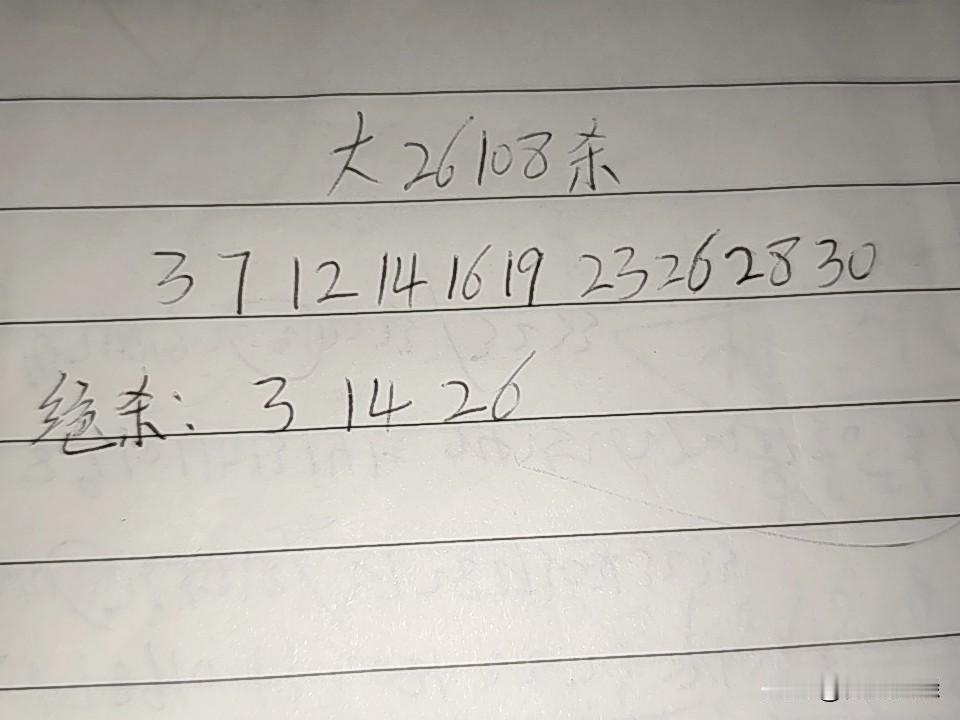 大26108杀
3 7 12 14 16 19 23 26 28 30
绝杀: 3 14 26